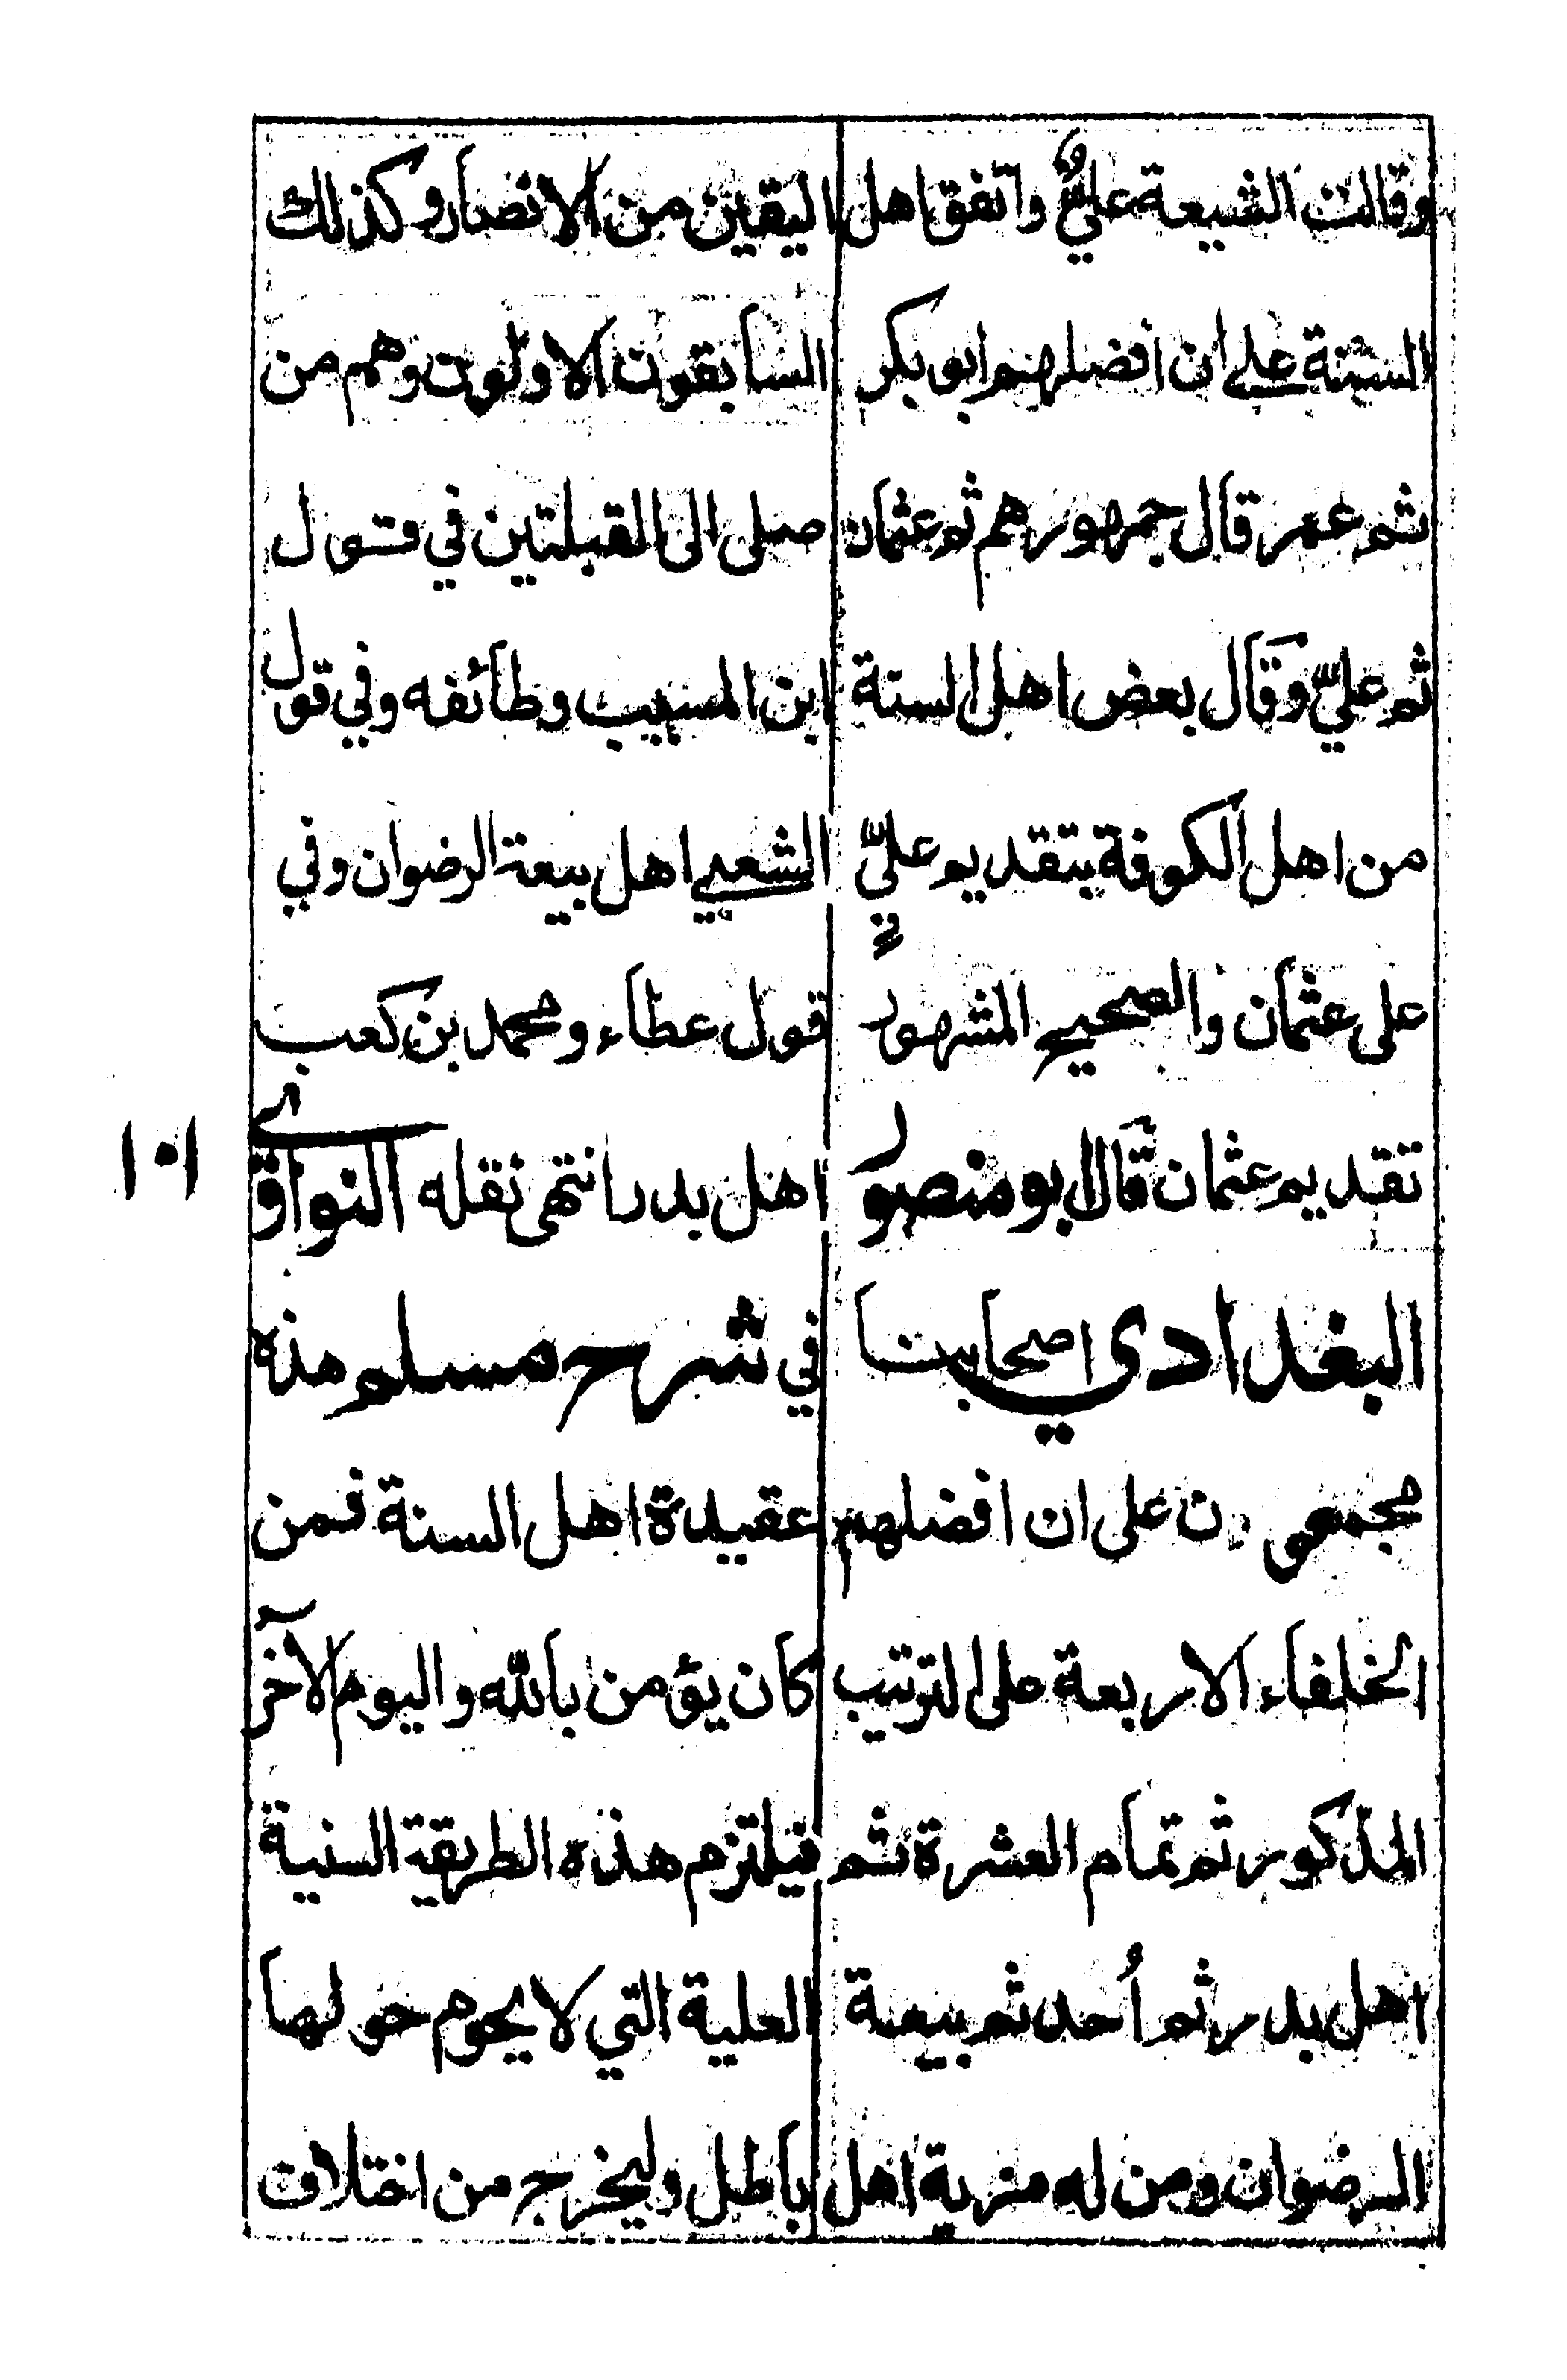 وقالت الشيعة عليٌّ واتفق اهل
السنة على ان افضلهم ابو بكر
ثم عمر قال جمهورهم ثم عثمان
ثم عليّ وقال بعض اهل السنة
من اهل الكوفة بتقديم عليّ
على عثمان والصحيح المشهور
تقديم عثمان قال ابو منصور
البغدادي اصحابنا
مجمعون على ان افضلهم
الخلفاء الاربعة على الترتيب
المذكور ثم تمام العشرة ثم
اهل بدر ثم أحد ثم بيعة
الرضوان ومن له مزية اهل
اليقين من الانصار وكذلك
السابقون الاولون وهم من
صلى الى القبلتين في قول
ابن المسيب وطائفه وفي قول
الشعبي اهل بيعة الرضوان وفي
قول عطاء ومحمد بن كعب
اهل بدر انتهى نقله النواوي
في شرح مسلم هذه
عقيدة اهل السنة فمن
كان يؤمن بالله واليوم الآخر
فيلتزم هذه الطريقة السنية
العلية التي لا يحوم حولها
باطل وليخرج من اختلاف
١٠١